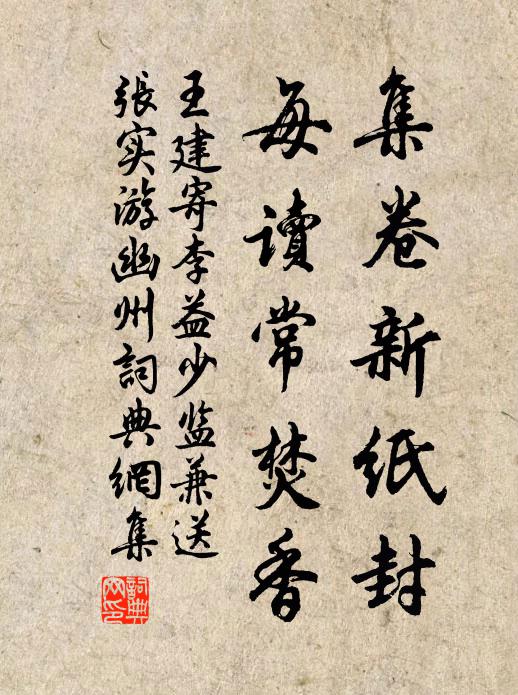 集卷新紙封
每讀常焚香
王建寄李益少监兼送
張实游幽州詞典網集
詞典
网印